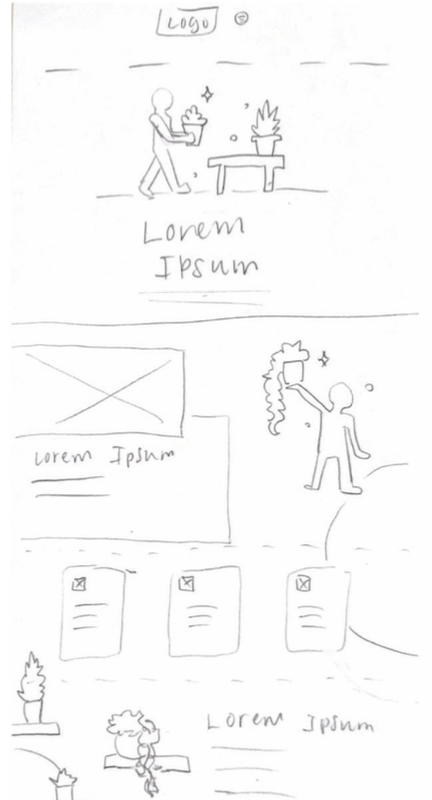 Logo
Lorem
Ipsum
Lorem Ipsum
Lorem Ipsum